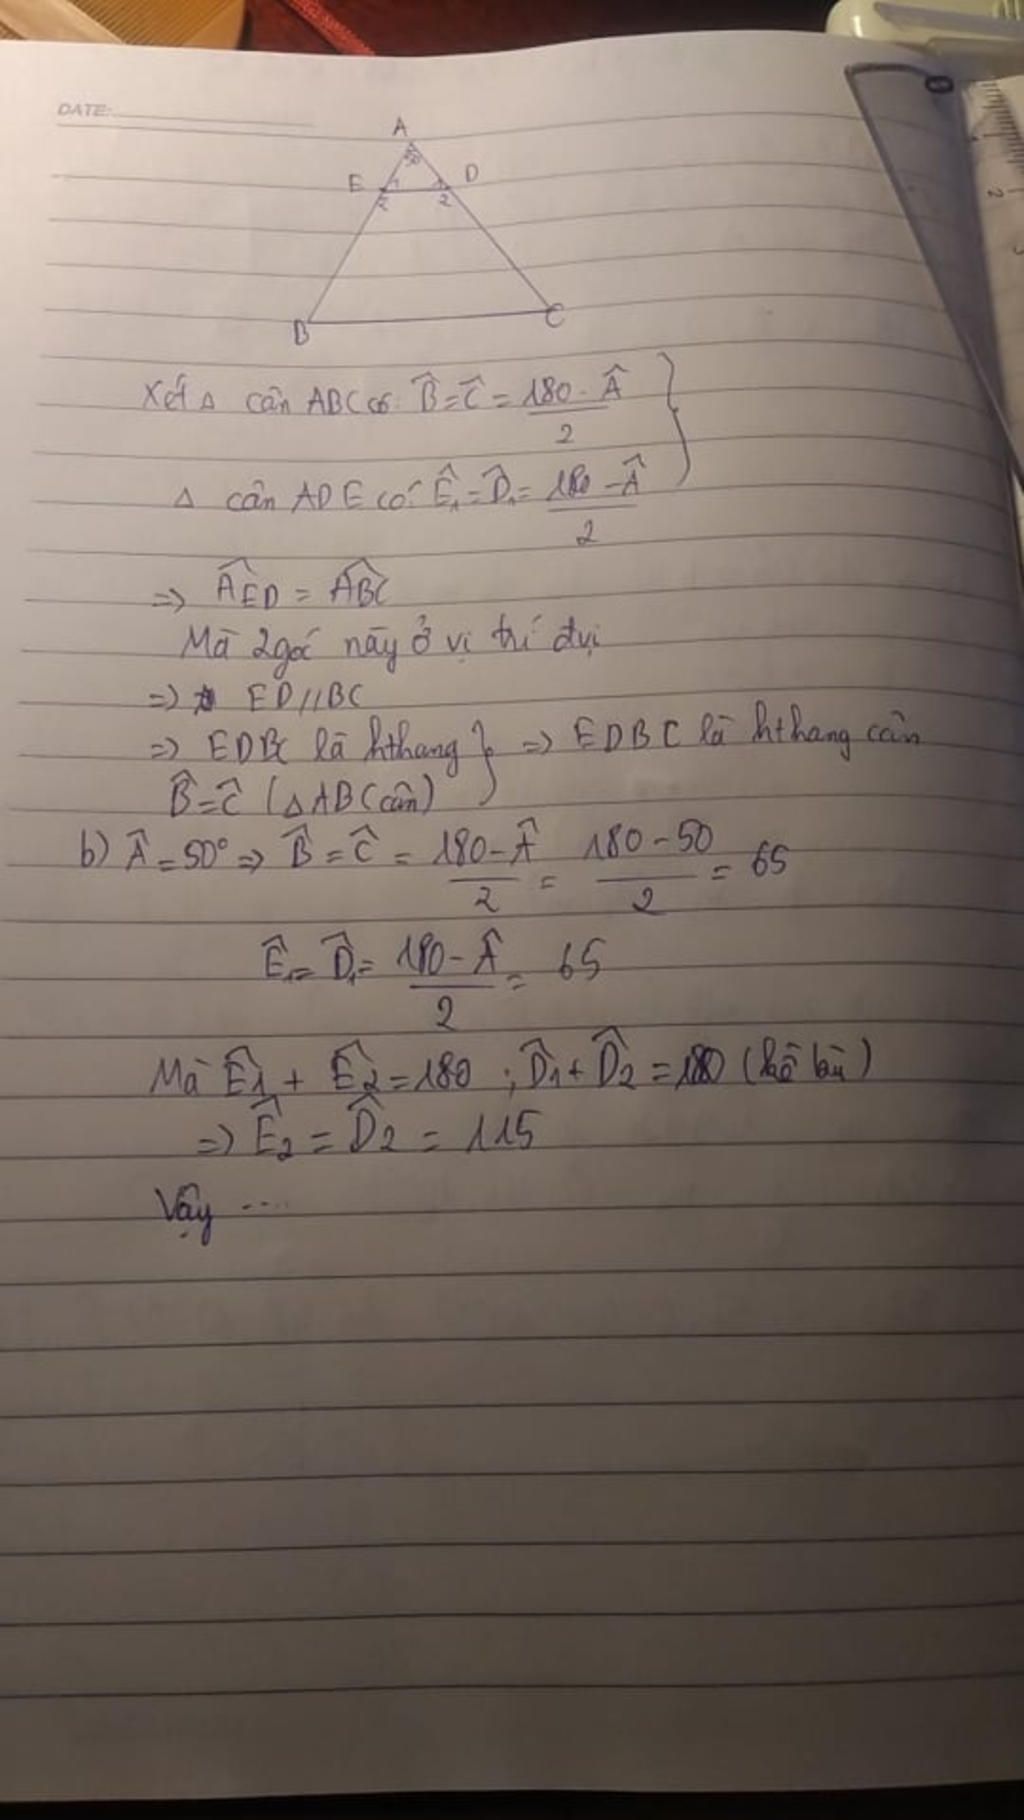 DATE:
A
50
E 1 1 D
2 2
B C
Xét △ cân ABC có: B̂ = Ĉ = 180 - Â / 2
△ cân ADE có: Ê1 = D̂1 = 180 - Â / 2
=> AED = ABC
Mà 2 góc này ở vị trí đvị
=> ED // BC
=> EDBC là hthang } => EDBC là hthang cân
B̂ = Ĉ (△ABC cân)
b) Â = 50° => B̂ = Ĉ = 180 - Â / 2 = 180 - 50 / 2 = 65
Ê1 = D̂1 = 180 - Â / 2 = 65
Mà Ê1 + Ê2 = 180 ; D̂1 + D̂2 = 180 (kề bù)
=> Ê2 = D̂2 = 115
Vậy ....